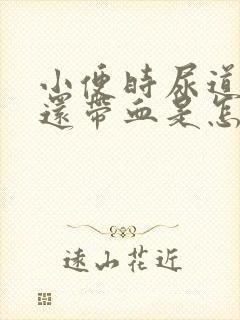 小便時尿道
還帶血是怎
遠山花近